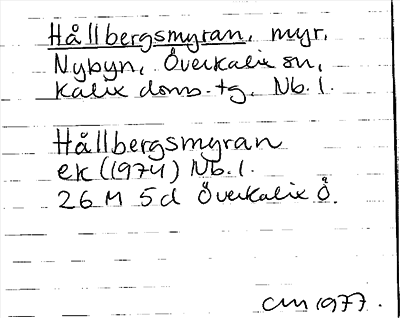 Hållbergsmyran, myr,
Nybyn, Överkalix sn,
Kalix doms.tg. Nb.l.
Hållbergsmyran
ek (1974) Nb.l.
26 M 5d Överkalix Ö.
CM 1977.